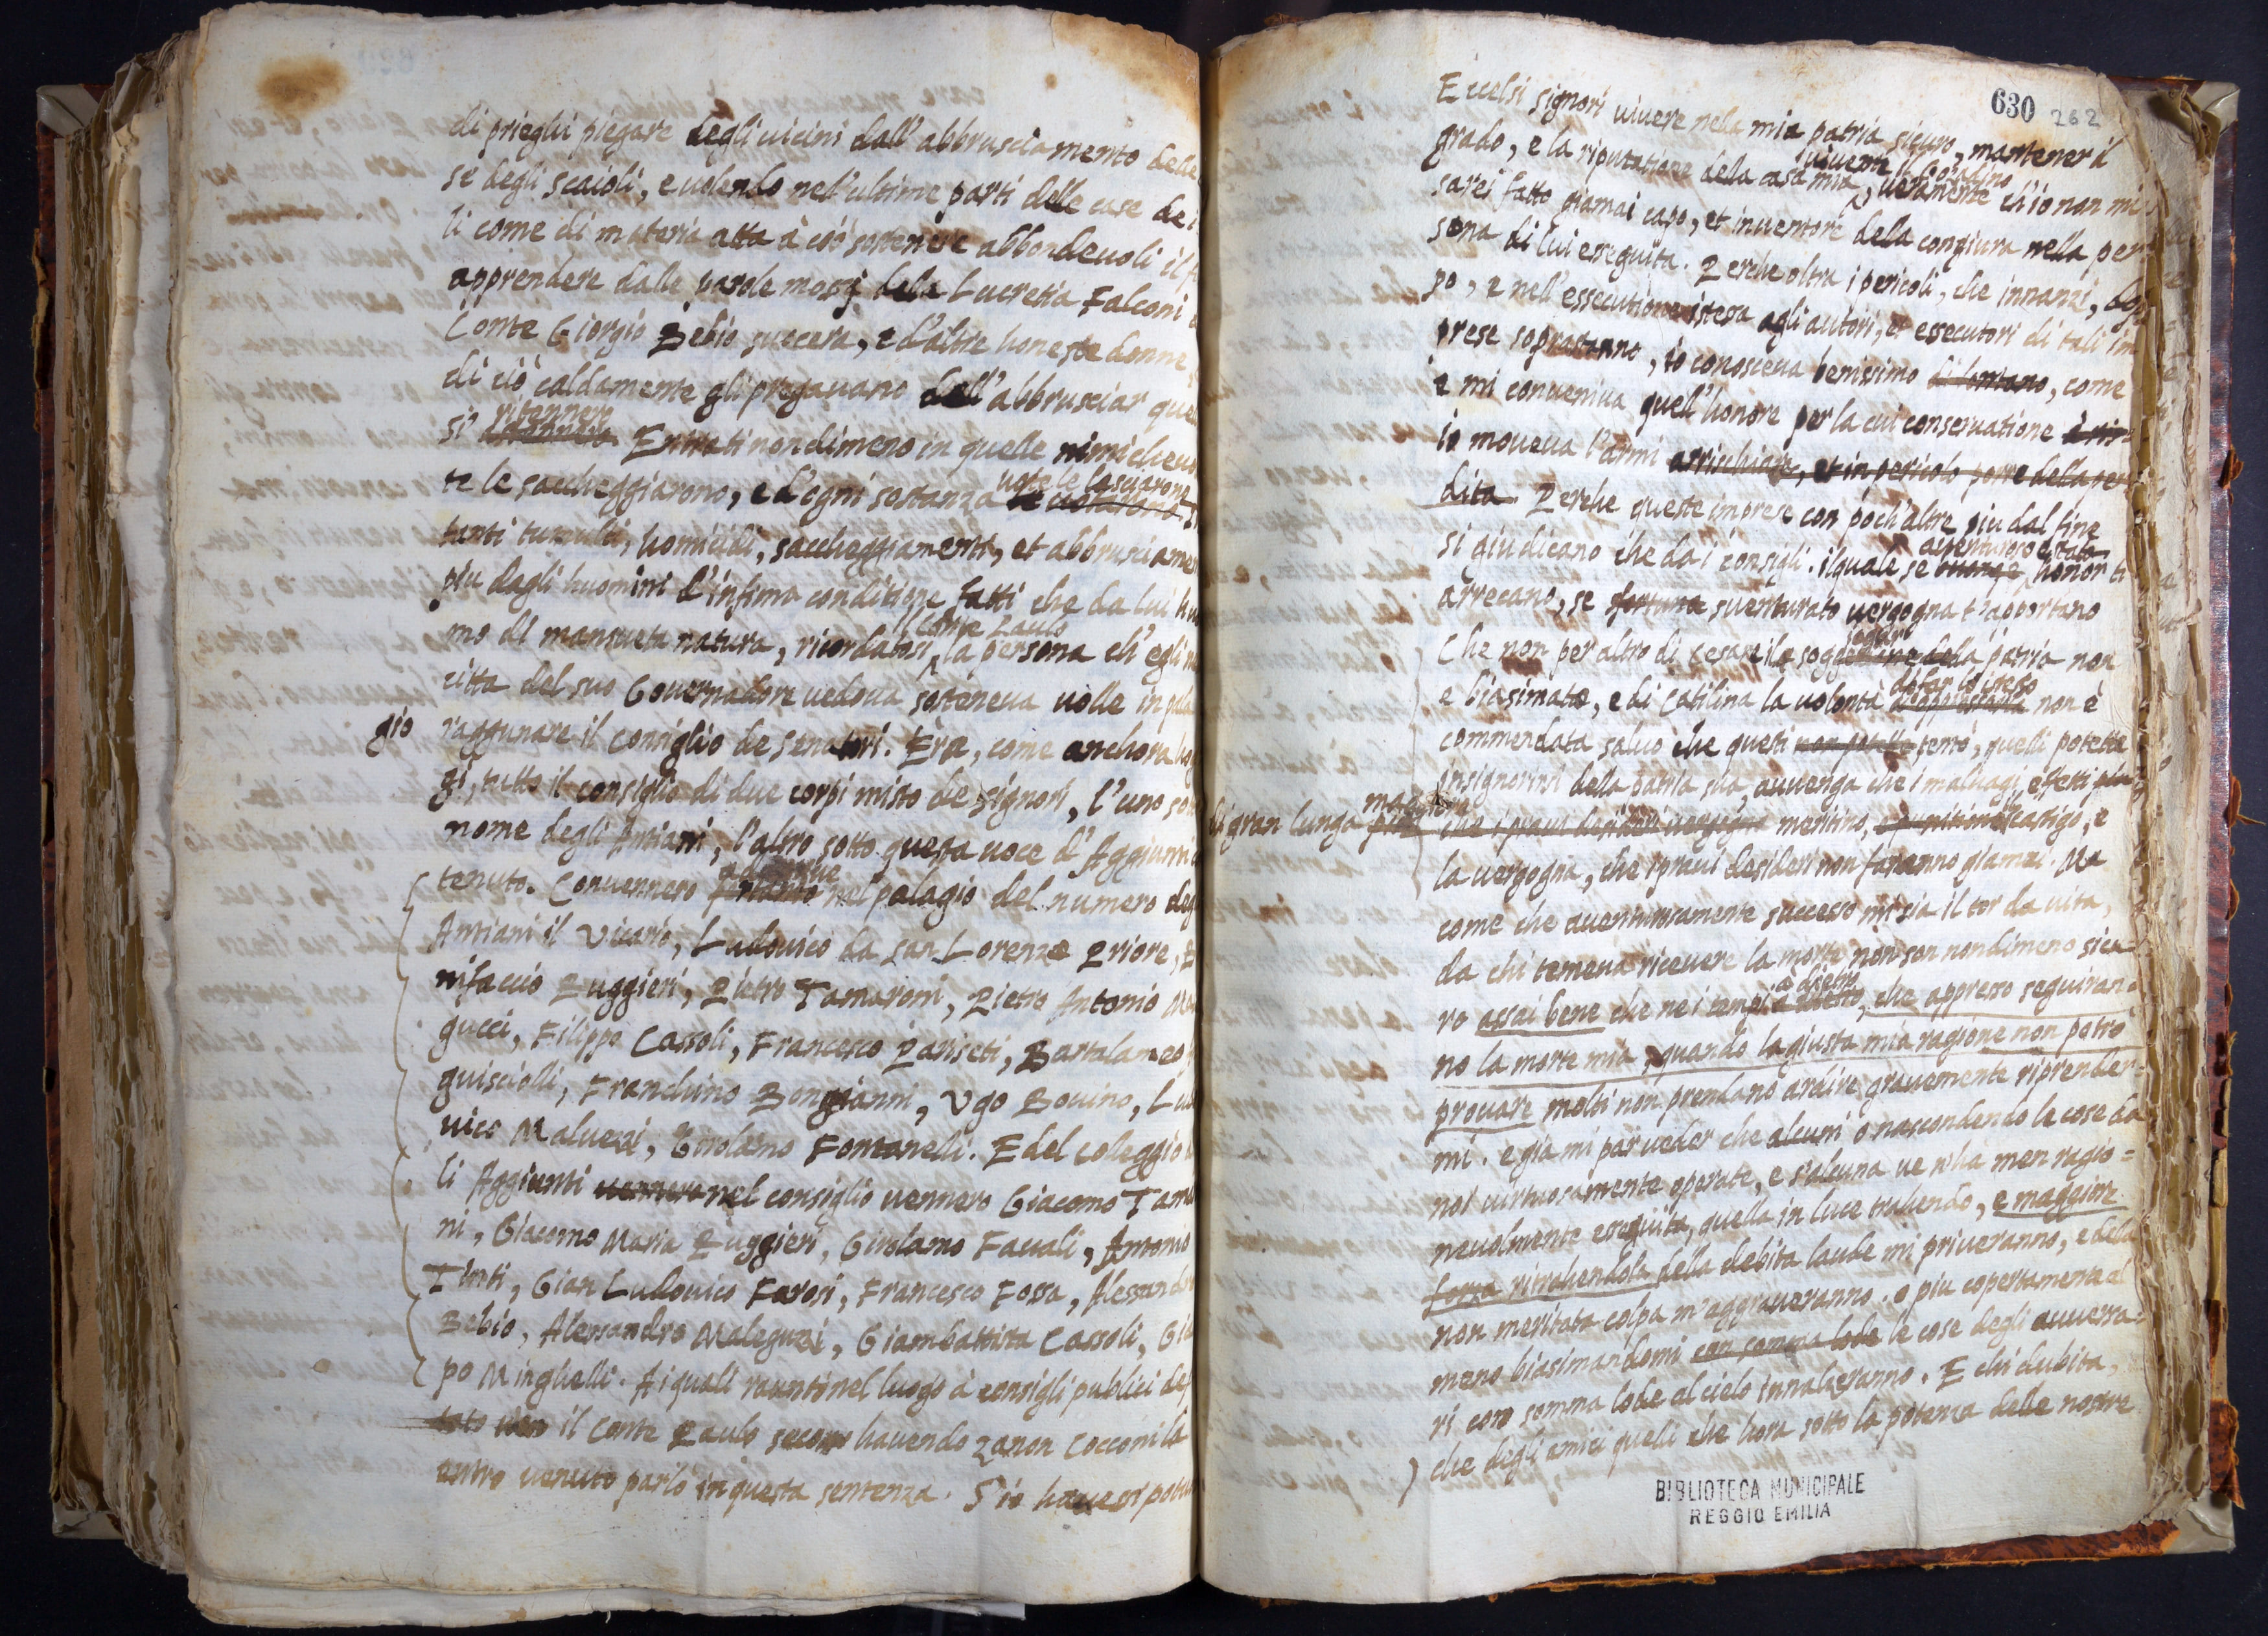 di prieghi piegare degli uicini dall'abbrusciamento delle
se degli scaioli, e uolendo nell'ultime parti delle case de i
li come di materia atta à ciò sostenere abbondeuoli il
apprendere dalle parole mossi della Lucretia Falconi
Conte Giorgio Bebio succera, e d'altre honeste donne,
di ciò caldamente gli pregauano dall'abbrusciar que
ritennero
si Entrati nondimeno in quelle nimicheuo
uote le lasciarono
te le saccheggiarono, e d'ogni sostanza le uotarono
tanti tumulti, homicidi, saccheggiamenti, et abbrusciame
piu dagli huomini d'infima conditione fatti che da lui hu
il Conte Paulo
mo di mansueta natura, ricordatosi la persona ch'egli
citta del suo Gouernadore uedoua sosteneua uolle in pala
gio raggunare il consiglio de senatori. Era, come anchora hog
gi, tutto il consiglio di due corpi misto de signori, l'uno so
nome degli Antiani, l'altro sotto questa uoce d'Aggiunti
adunque
tenuto. Conuennero nel palagio del numero deg
Antiani il Vicario, Ludouico da san Lorenzo Priore,
nifaccio Ruggieri, Pietro Tamaroni, Pietro Antonio
gucci, Filippo Cassoli, Francesco Pariseti, Bartolameo
guisciolli, Franchino Bongianni, Vgo Bouino, Lud
uico Maluezi, Girolamo Fontanelli. E del collegio
li Aggiunti uennero nel consiglio uennero Giacomo Tama
ni, Giacomo Maria Ruggieri, Girolamo Fauali, Antonio
Tinti, Gian Ludouico Farosi, Francesco Fossa, Alessandro
Bebio, Alessandro Maleguzi, Giambattista Cassoli, Gia
po Minghelli. Ai quali raunti nel luogo à consigli publici de
il Conte Paulo seco hauendo Zanon Cocconi là
entro uenuto parlò in questa sentenza. S'io hauessi potu
630 262
Eccelsi signori uiuere nela mia patria sicuro, mantener il
uiuente il Gozadino
grado, e la riputatione della casa mia, ueramente ch'io non mi
sarei fatto giamai capo, et inuentore della congiura nella per
sona di lui esseguita. Perche oltra i pericoli, che innanzi, do
po, e nell'essecutione istessa agli autori, et essecutori di tali im
prese soprastanno, io conosceua benissimo di lontano, come
e mi conueniua quell'honore per la cui conseruatione
io moueua l'armi arrischiare, et in pericolo porre della per
dita. Perche queste imprese con poch'altre piu dal fine
auenturoso è stato
si giudicano che da i consigli. ilquale se honor ti
arrecano, se fortuna suenturato uergogna t'apportano
Che non per altro di Cesare il della patria non
e biasimato, e di Catilina la uolontà non è
commendata saluo che questi non potette tentò, quelli potette
insignorirsi della patria sua, auuenga che i maluagi effetti piu
di gran lunga maggiore che i praui desideri uergogna meritino, castigo, e
la uergogna, che i praui desideri non faranno giamai. Ma
come che auenturosamente successo mi sia il tor da uita,
da chi temeua riceuere la morte non son nondimeno sicu=
à dietro
ro assai bene che ne i tempi, che appresso seguiran=
no la morte mia, quando la giusta mia ragione non potrò
prouare molti non prendano ardire grauemente riprender=
mi. e gia mi par ueder che alcuni o nascondendo le cose da
noi uirtuosamente operate, e s'alcuna ue n'ha men ragio=
neuolmente esseguita, quella in luce trahendo, e maggiore
forza ritrahendola della debita laude mi priueranno, e della
non meritata colpa m'aggraueranno. o piu copertamente al
meno biasimandomi con somma lode le cose degli auuersa=
ri con somma lode al cielo innalzeranno. E chi dubita,
che degli amici quelli che hora sotto la potenza delle nostre
BIBLIOTECA MUNICIPALE
REGGIO EMILIA